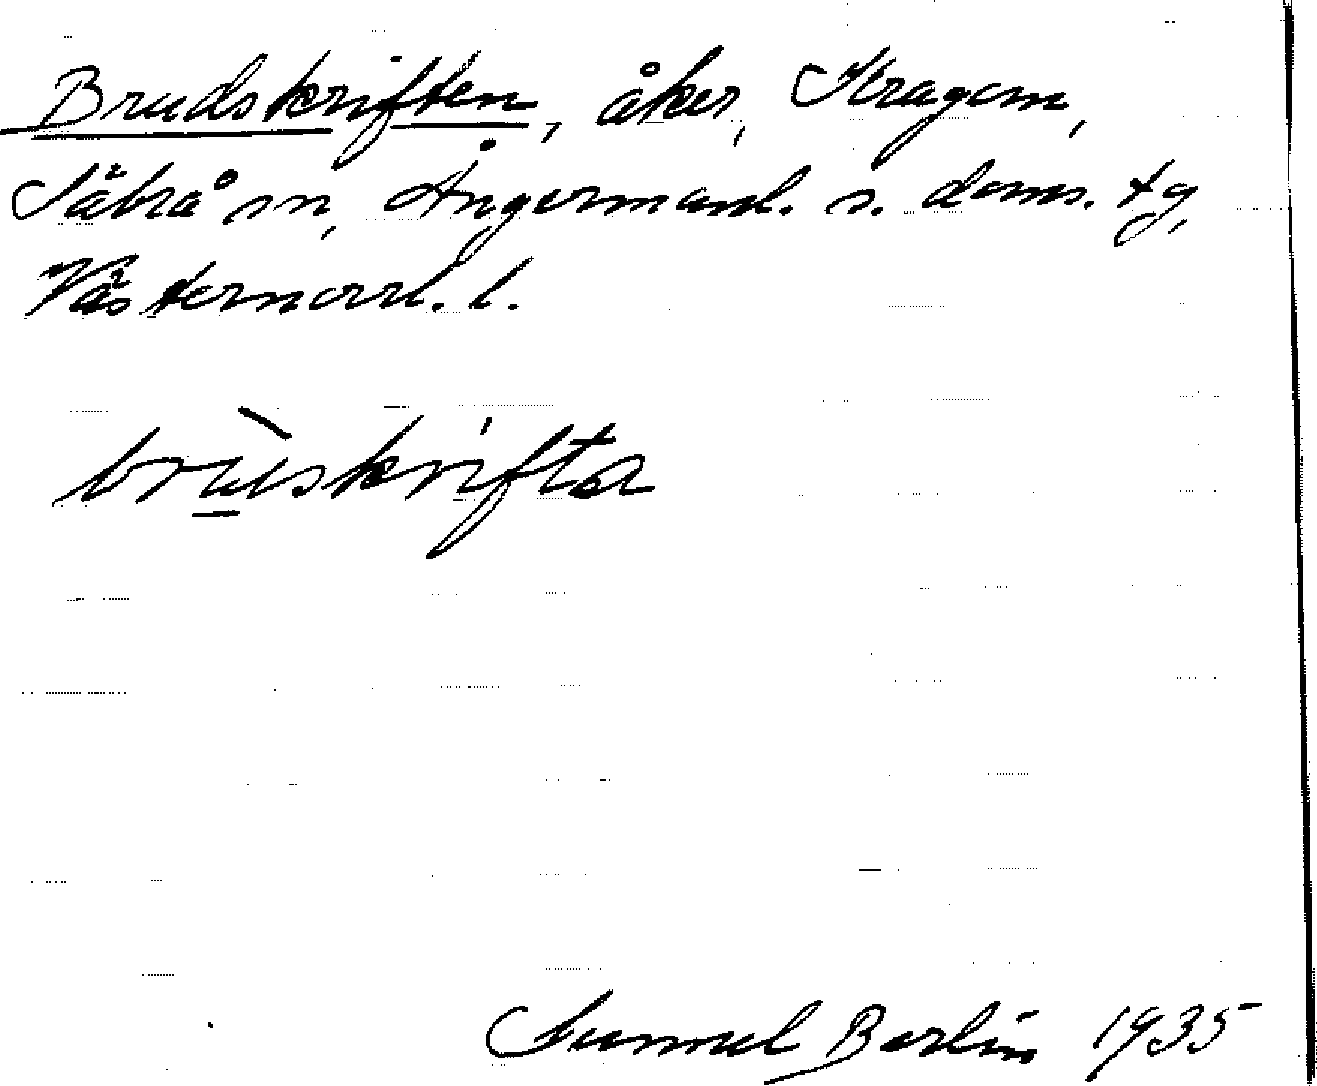 Brudskriften, åker, Kragom,
Säbrå sn, Ångermanl. s. doms. tg,
Västernorrl. l.
brùskrifta
Gunnel Berlin 1935